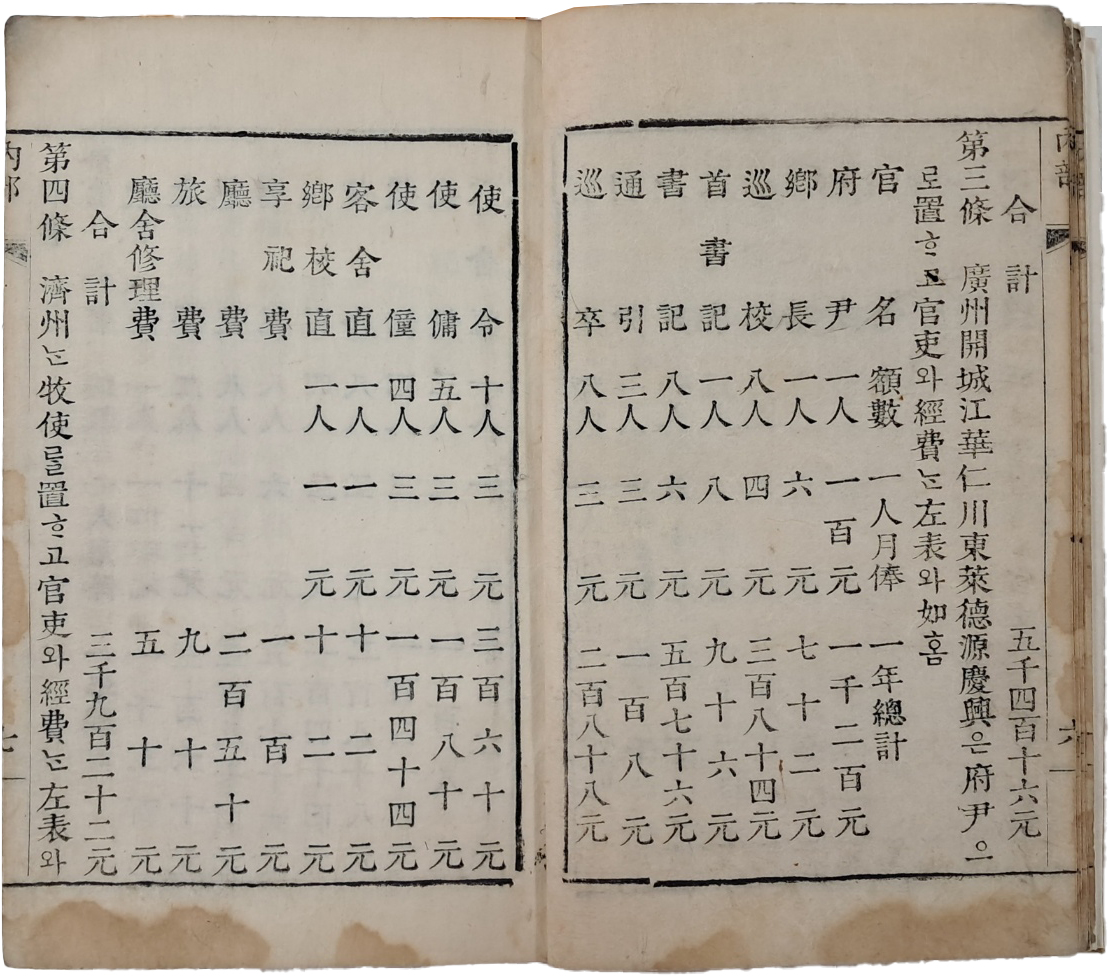 內部 六
合計 五千四百十六元
第三條 廣州開城江華仁川東萊德源慶興은府尹으
로置ᄒᆞ고官吏와經費ᄂᆞᆫ左表와如홈
官名 額數 一人月俸 一年總計
府尹 一人 一百元 一千二百元
鄕長 一人 六元 七十二元
巡校 八人 四元 三百八十四元
首書記 一人 八元 九十六元
書記 八人 六元 五百七十六元
通引 三人 三元 一百八元
巡卒 八人 三元 二百八十八元
使令 十人 三元 三百六十元
使傭 五人 三元 一百八十元
使僮 四人 三元 一百四十四元
客舍直 一人 一元 十二元
鄕校直 一人 一元 十二元
享祀費 一百元
廳費 二百五十元
旅費 九十元
廳舍修理費 五十元
合計 三千九百二十二元
第四條 濟州ᄂᆞᆫ牧使를置ᄒᆞ고官吏와經費ᄂᆞᆫ左表와
內部 七